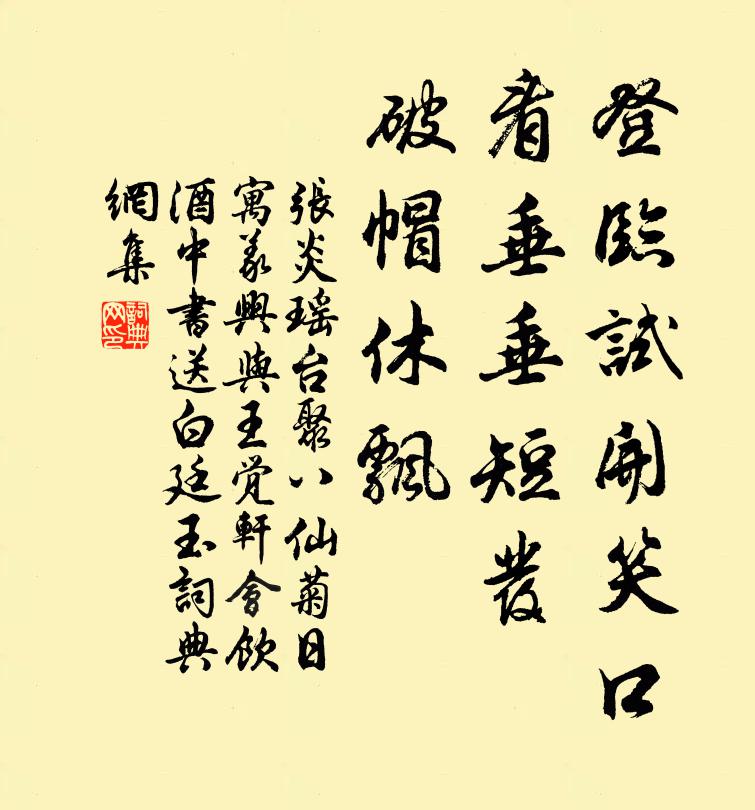 登臨試開笑口
看垂垂短髮
破帽休飄
張炎瑤台聚八仙菊日
寓義興與王覚軒會飲
酒中書送白廷玉詞典
網集
詞典
网印